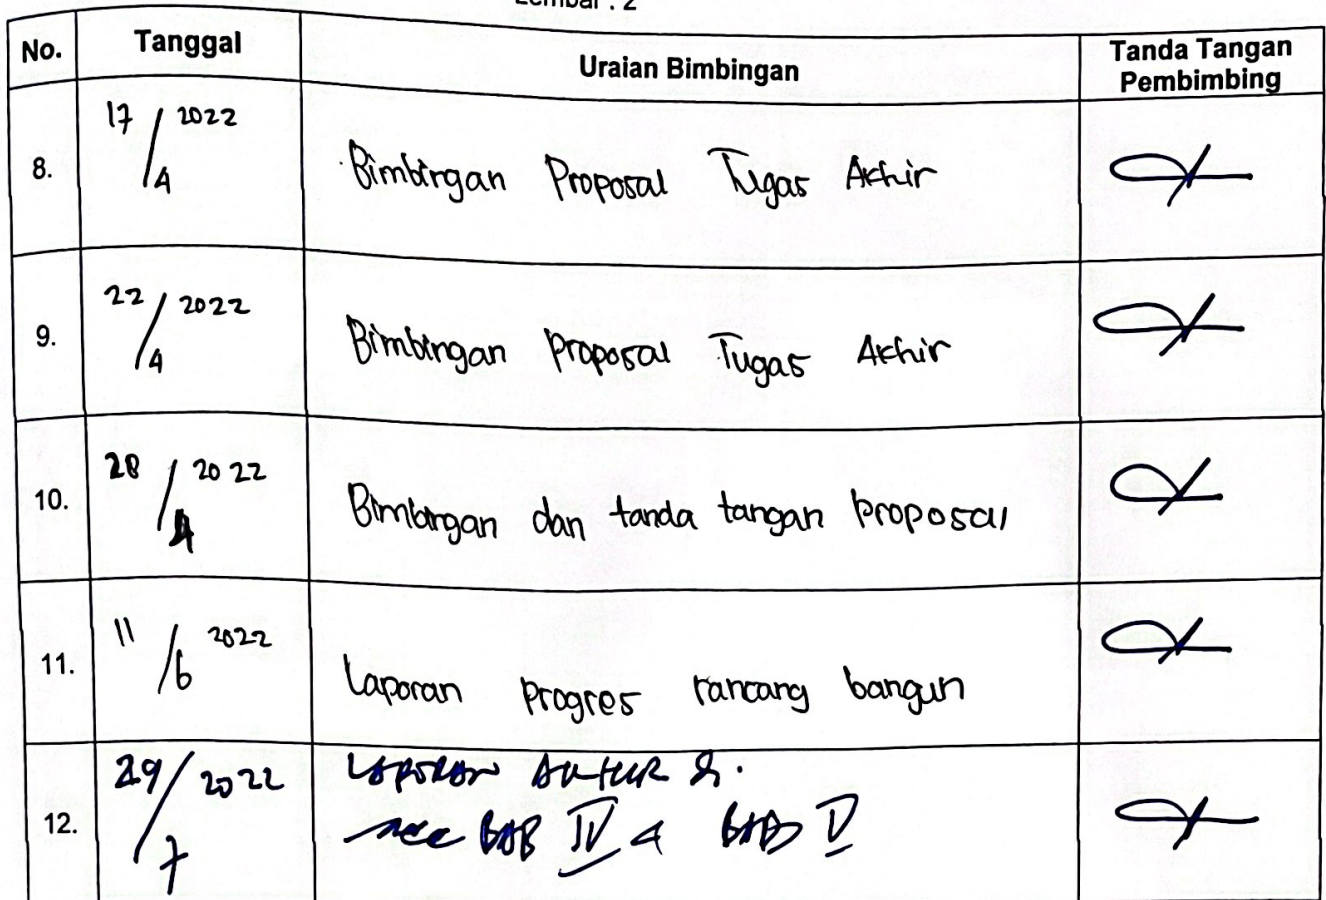 Lembar : 2
No. Tanggal Uraian Bimbingan Tanda Tangan Pembimbing
8. 17/4 2022 Bimbingan Proposal Tugas Akhir
9. 22/4 2022 Bimbingan Proposal Tugas Akhir
10. 28/4 2022 Bimbingan dan tanda tangan proposal
11. 11/6 2022 Laporan Progres rancang bangun
12. 29/7 2022 LAPORAN AKHIR &.
acc BAB IV & BAB V